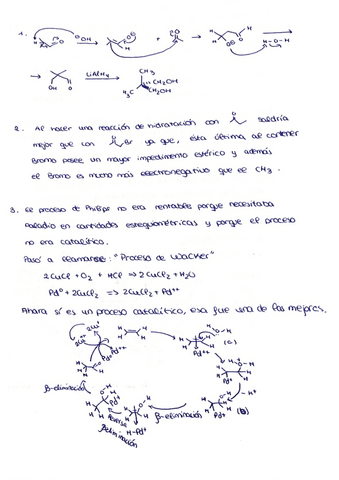 1.
H
O
⊖OH
+
O
H
H-O-H
OH
O
LiAlH4
CH3
CH2OH
H3C
CH2OH
2. Al hacer una reacción de hidratación con saldría
mejor que con Br ya que, ésta última, al contener
Bromo posee un mayor impedimento estérico y además
el Bromo es mucho más electronegativo que el CH3.
3. El proceso de Philips no era rentable porque necesitaba
Paladio en cantidades estequiométricas y porque el proceso
no era catalítico.
Pasó a llamarse: "Proceso de Wacker"
2CuCl + O2 + HCl => 2CuCl2 + H2O
Pd⁰ + 2CuCl2 => 2CuCl2 + Pd++
Ahora sí es un proceso catalítico, esa fue una de las mejores.
2Cu+
2Cu++
Pd++
(a)
-H+
(b)
β-eliminación
β-eliminación
Reverse
β-eliminación
H-Pd+